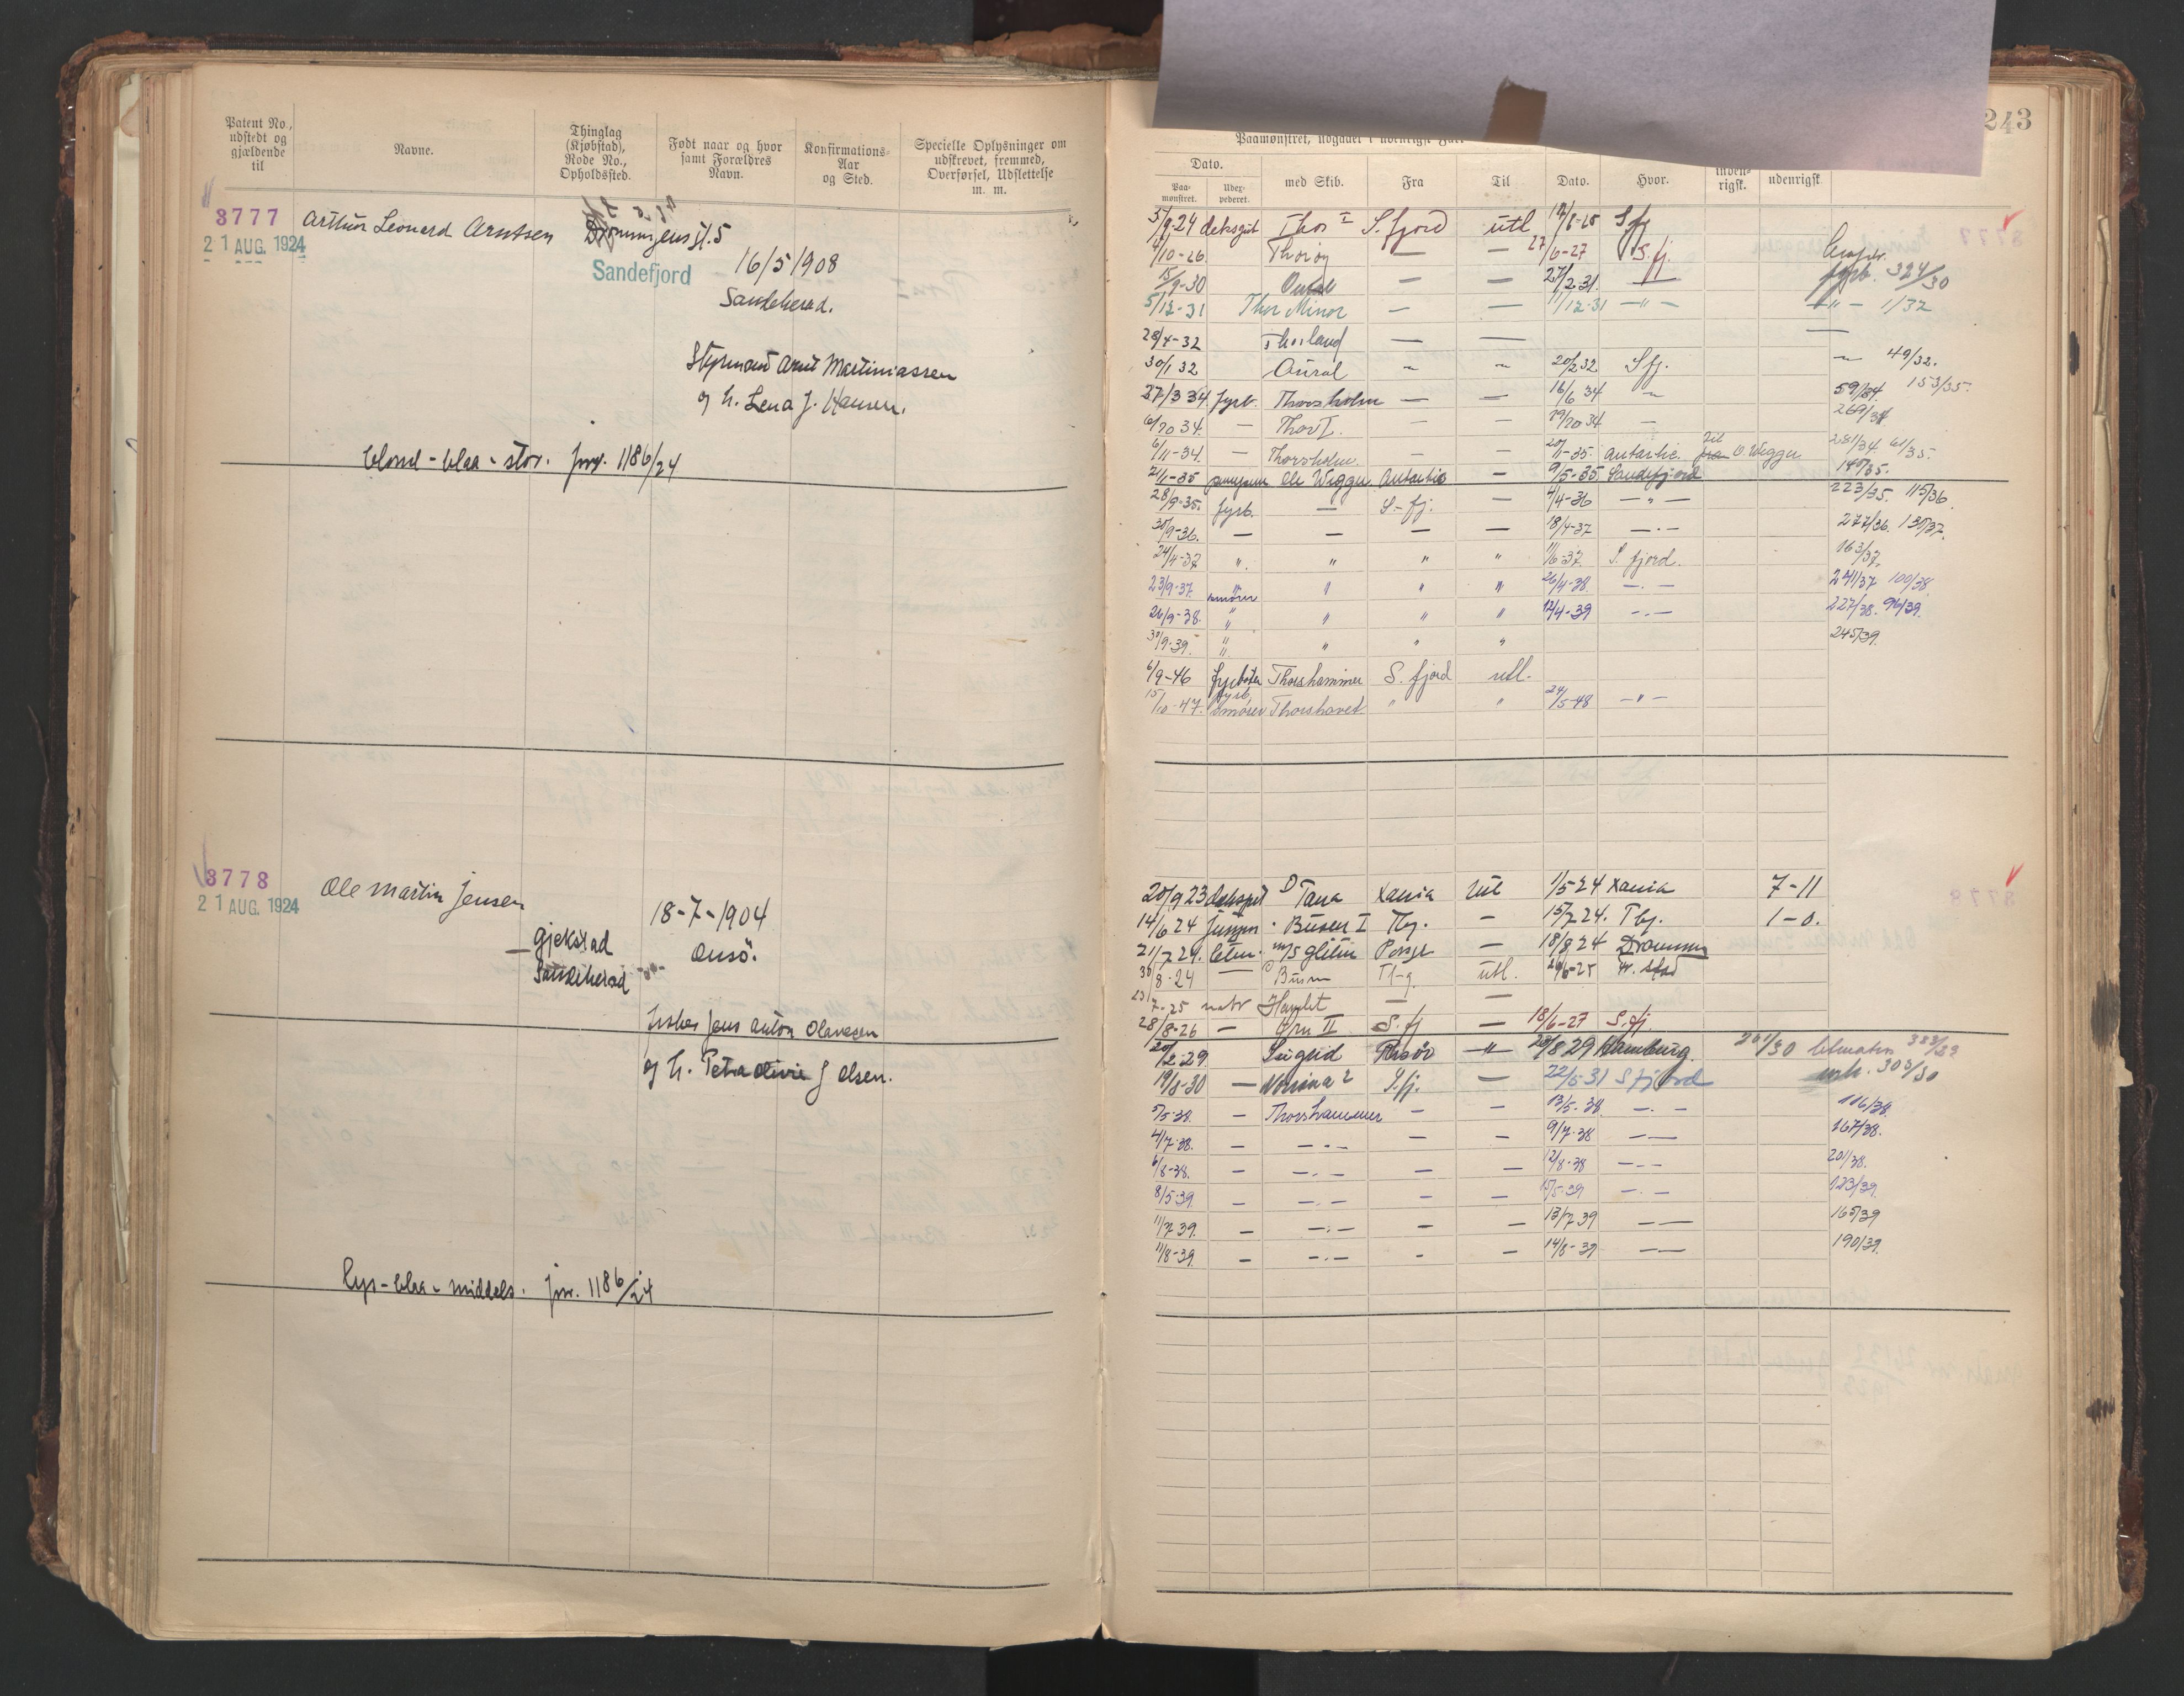 Patent No., udstedt og gjældende til
Navne.
Thinglag (Kjøbstad), Rode No., Opholdssted.
Født naar og hvor samt Forældres Navn.
Konfirmations-Aar og Sted.
Specielle Oplysninger om udskrevet, fremmed, Overførsel, Udslettelse m. m.
3777
21 AUG. 1924
Arthur Leonerd Arntsen
Dronningens gt. 5
Sandefjord
16/5 1908
Sandeherad.
Styrmand Arnt Martiniassen
og h. Lena J. Hansen.
blond - blaa - stor. jnr. 1186/24
3778
21 AUG. 1924
Ole Martin Jensen
Gjekstad
Sandeherad
18-7-1904
Onsö.
fisker Jens Anton Olavesen
og h. Petra Olivie J Olsen.
lys - blaa - middels. jnr. 1186/24
243
Paamønstret, udgaaet i udenrigsk Fart
Dato.
Paa-mønstret.
Uder-pederet.
med Skib.
Fra
Til
Dato.
Hvor.
inden-rigsk.
udenrigsk
5/9-24 deksgut Thor I S. fjord utl 12/6-25 S fj
4/10-26 Thorøy — — 27/6-27 S. fj.
15/9-30 Aural — — 27/2-31 — fyrb. 324/30
5/12-31 Thor Minor — — 11/12-31 —"— —"— 1/32
28/4-32 Thorland — — —
30/1 32 Aural 20/2 32 S fj. 49/32.
27/3 34. fyrb. Thorsholm — — 16/6 34 59/34. 153/35.
6/10 34. — Thor I. — — 19/10 34 — 269/34
6/11-34. — Thorsholm. — — 20/1-35. Antartic. til O. Wegger 281/34 61/35.
21/1-35 pumpem Ole Wegger Antartic — 9/5-35 Sandefjord 140/35.
28/9-35. fyrb. — S-fj. — 4/4-36 —"— 223/35. 115/36
30/9-36. — — — — 18/4-37 —.— 277/36. 130/37.
24/4-37 " " " " 11/6-37 S. fjord. 163/37.
23/9-37. smører " " " 26/4-38. —.— 241/37 100/38
26/9-38. " " " " 12/4-39 —.— 227/38. 96/39.
30/9-39. " " " " 245/39
6/9-46 fyrbøter Thorshammer S. fjord utl.
15/10-47. fyrb. smører Thorshavet " " 24/5-48 —"—
20/9 23 deksgut D Tana Xania Utl 1/5 24 Xania 7-11
14/6 24 jungm · Busen I Tbg. — 15/7 24. Tbg. 1-0.
21/7 24. letm. m/s Glitin Porsgr — 18/8 24 Drammen
30/8-24 — D Busen Tbg. utl. 20/6-25 Fr. stad
23/7-25 matr Hamlet — —
28/8-26 — Ørn II S. fj — 18/6-27 S. fj.
20/2-29. Sigrid Risör —"— 20/8 29 Hamburg. 261/30 323/29
19/8-30 — Norina 2 S. fj. — 22/5-31 S fjord 303/30
5/5-38. — Thorshammer — — 13/5-38. —.— 116/38.
4/7-38. — —.— — — 9/7-38 —— 167/38.
6/8-38. — —.— — — 12/8-38 —.— 201/38.
8/5-39. — —.— — — 15/5-39 —.— 123/39.
11/7-39. — —.— — — 13/7 39 —— 165/39
11/8-39. — —.— - — 14/8-39 —— 190/39.